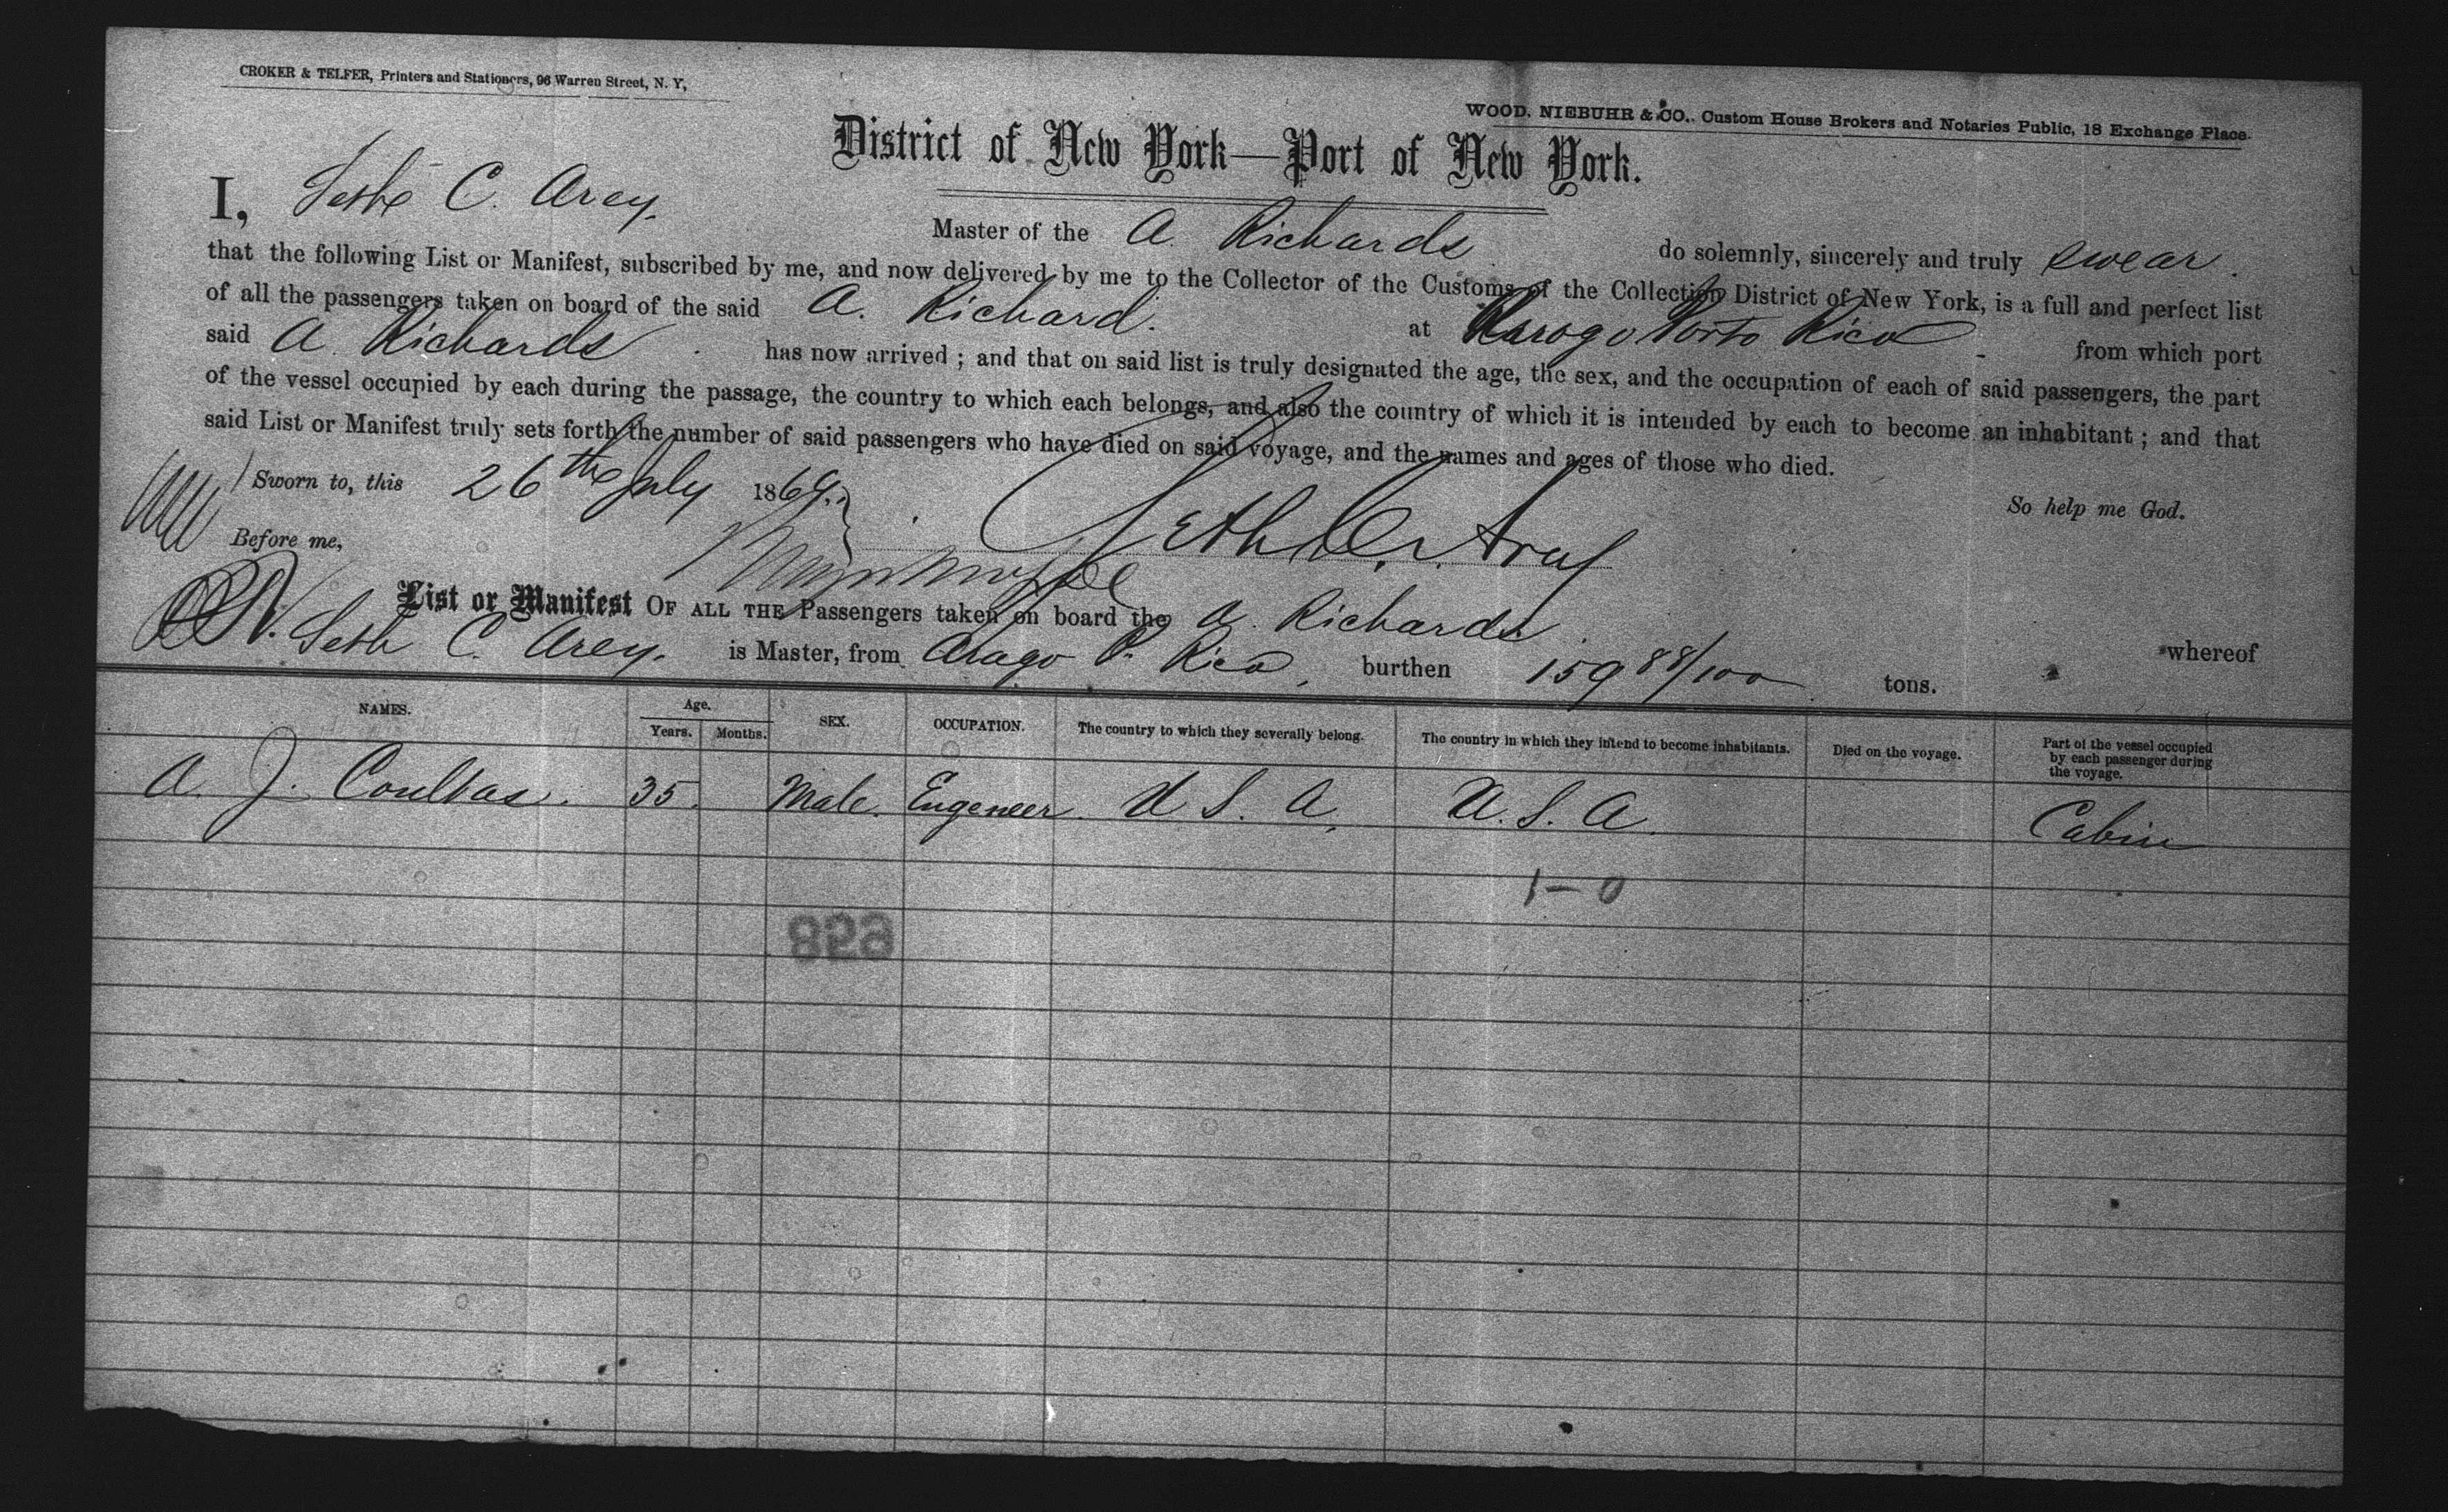 CROKER & TELFER, Printers and Stationers, 96 Warren Street, N. Y,
WOOD, NIEBUHR & CO., Custom House Brokers and Notaries Public, 18 Exchange Place.
District of New York—Port of New York.
I, Seth C. Arey. Master of the A Richards do solemnly, sincerely and truly swear.
that the following List or Manifest, subscribed by me, and now delivered by me to the Collector of the Customs of the Collection District of New York, is a full and perfect list
of all the passengers taken on board of the said A. Richard. at Porto Rico from which port
said A Richards has now arrived ; and that on said list is truly designated the age, the sex, and the occupation of each of said passengers, the part
of the vessel occupied by each during the passage, the country to which each belongs, and also the country of which it is intended by each to become an inhabitant ; and that
said List or Manifest truly sets forth the number of said passengers who have died on said voyage, and the names and ages of those who died.
Sworn to, this 26th July 1869. So help me God.
Before me, Seth C. Arey
List or Manifest OF ALL THE Passengers taken on board the A. Richards whereof
Seth C. Arey. is Master, from Arago P. Rico, burthen 159 88/100 tons.
NAMES. Age. Years. Months. SEX. OCCUPATION. The country to which they severally belong. The country in which they intend to become inhabitants. Died on the voyage. Part of the vessel occupied by each passenger during the voyage.
A. J. Coultas. 35. Male. Engeneer. U S. A. U. S. A. Cabin
1 - 0